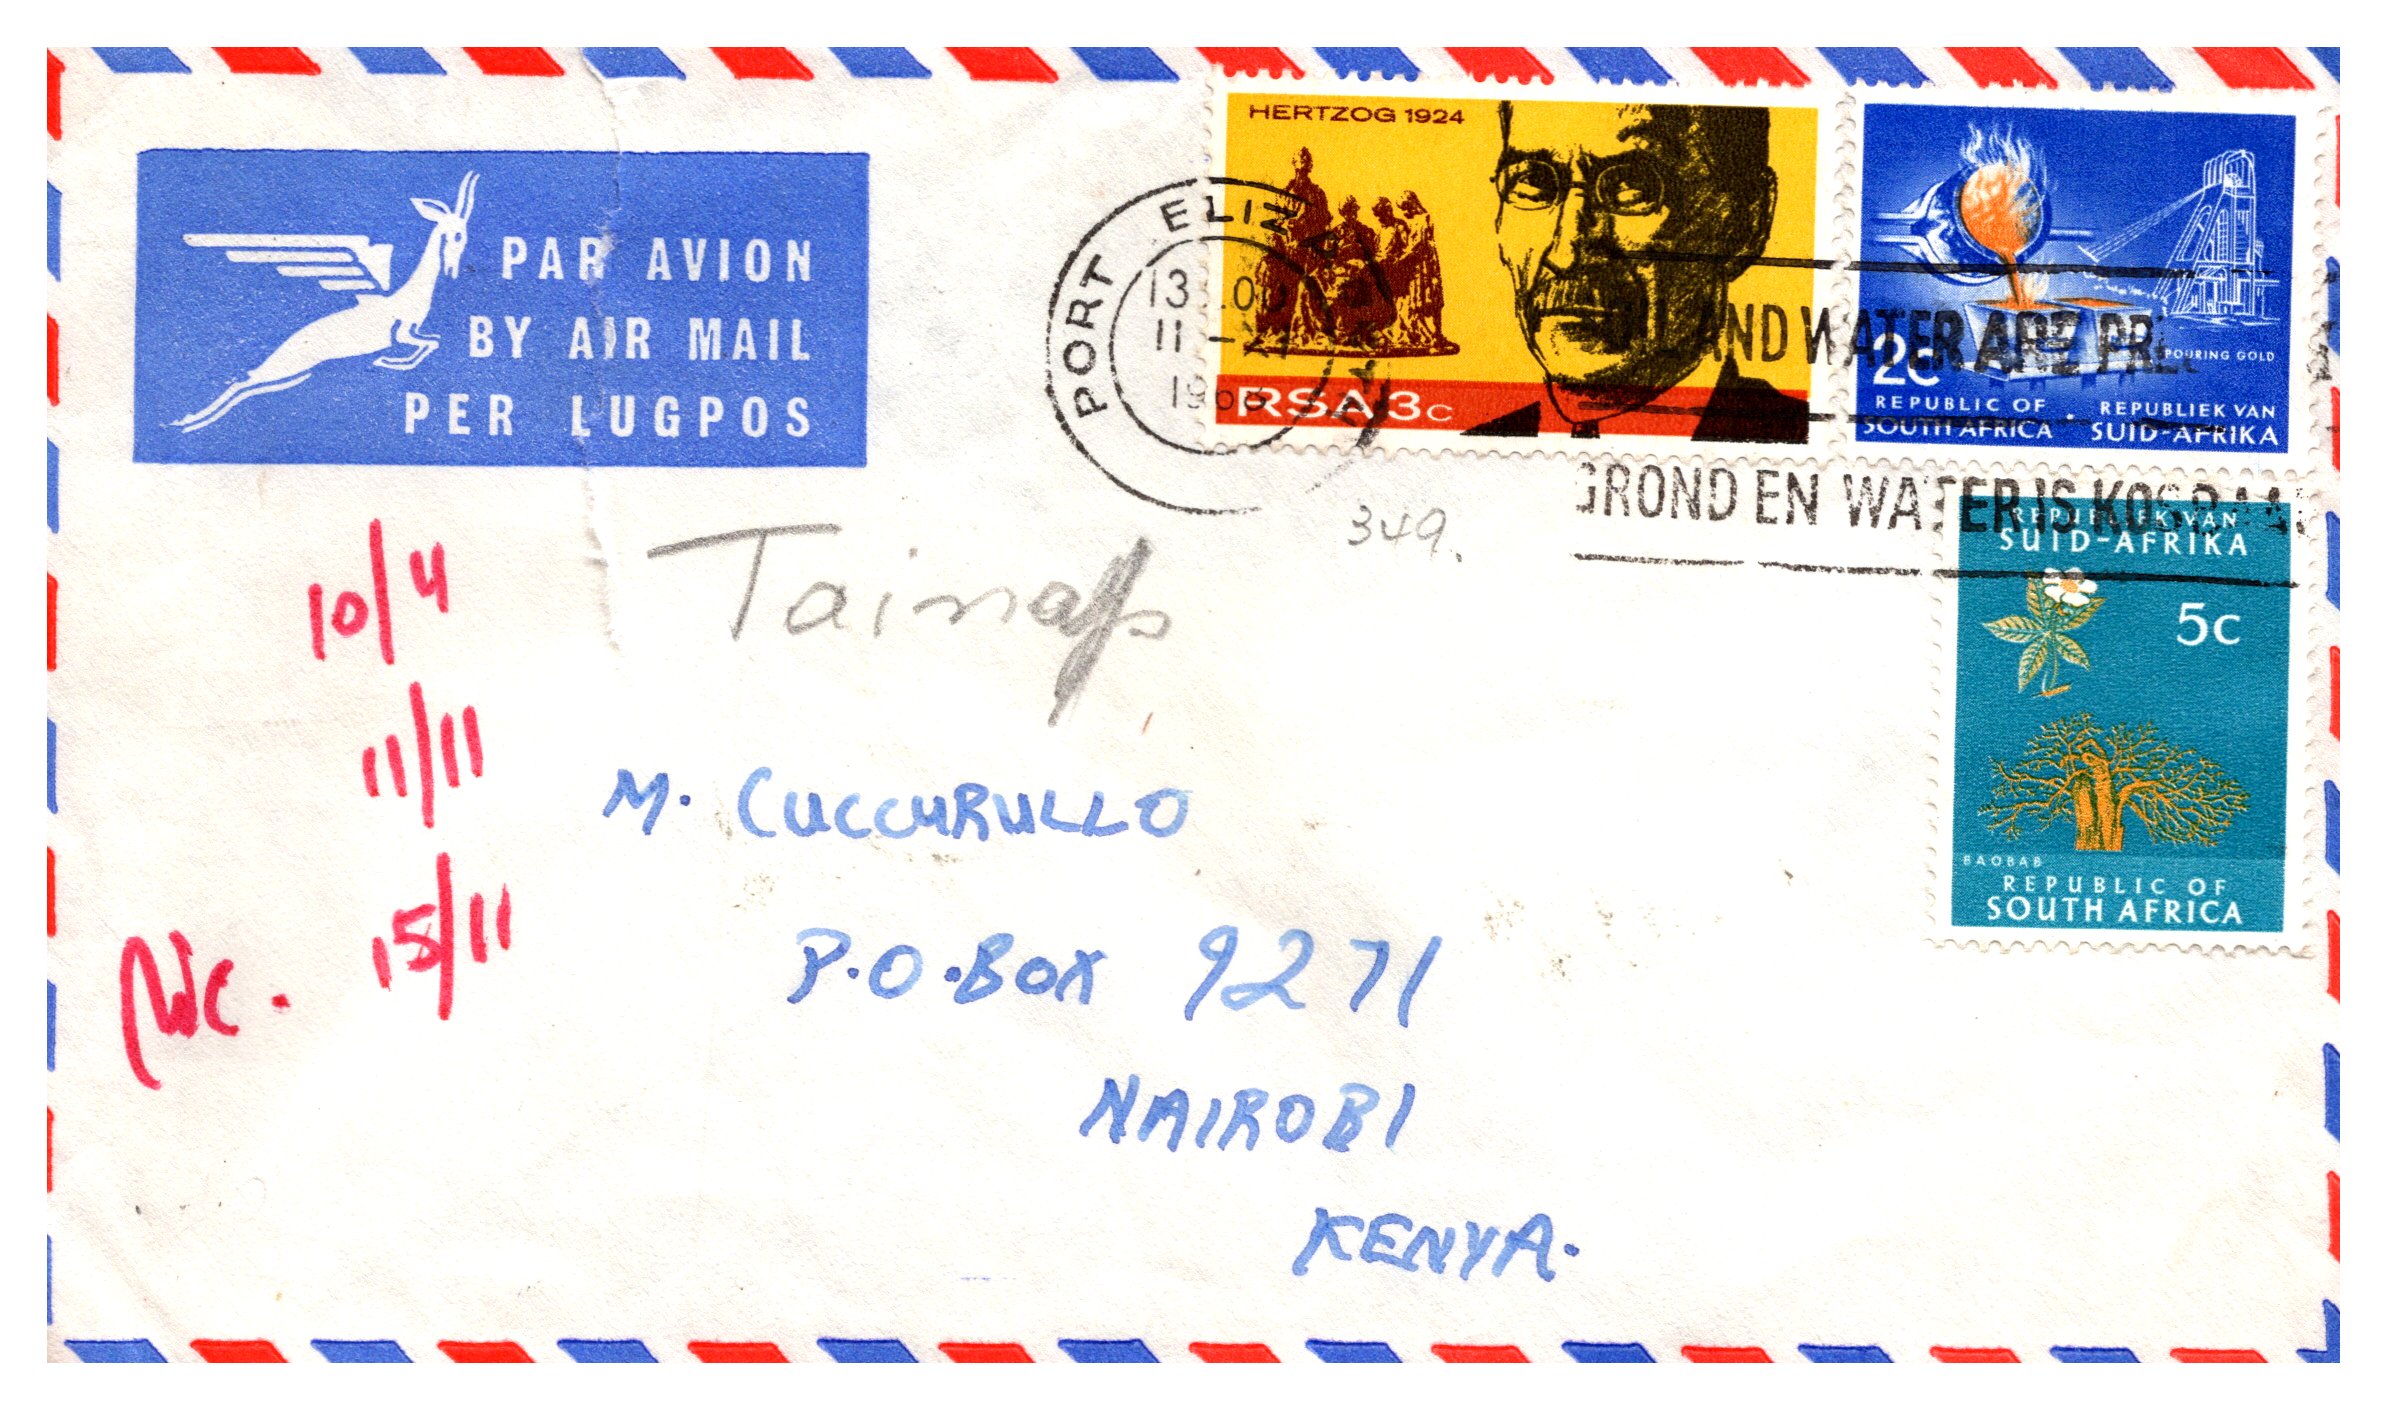 PAR AVION
BY AIR MAIL
PER LUGPOS
PORT ELIZ
13
11
HERTZOG 1924
RSA 3c
AND WATER ARE
2c
POURING GOLD
REPUBLIC OF
SOUTH AFRICA
REPUBLIEK VAN
SUID-AFRIKA
GROND EN WATER IS
REPUBLIEK VAN
SUID-AFRIKA
5c
BAOBAB
REPUBLIC OF
SOUTH AFRICA
349.
10/4
11/11
15/11
M. CUCCURULLO
P.O.BOX 9271
NAIROBI
KENYA.